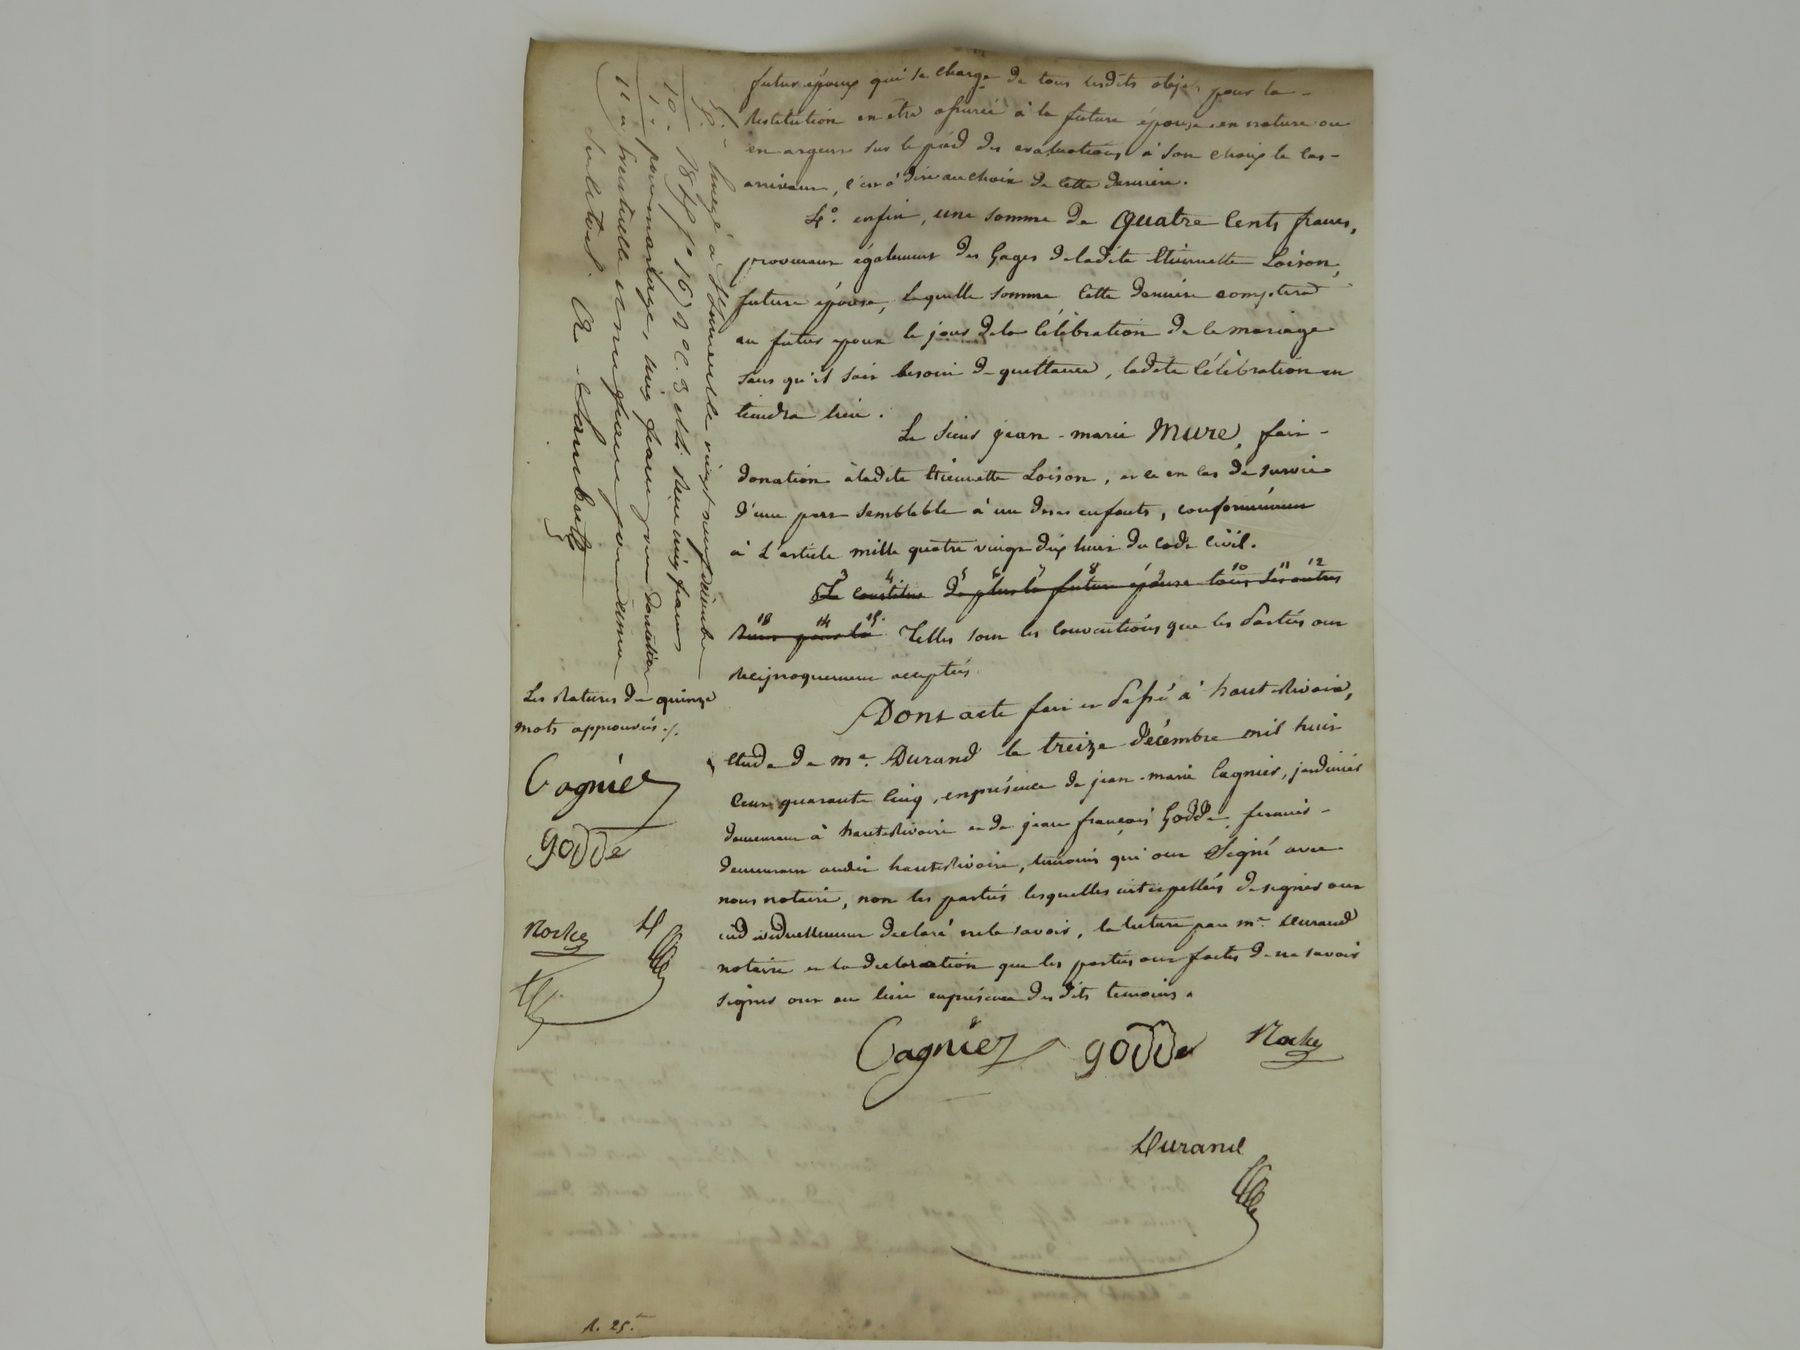 futur époux qui se charge de tous lesdits objets pour la
restitution en être assurée à la future épouse en nature ou
en argent sur le pied des evaluations à son choix le cas
arrivant, c'est à dire au choix de cette dernière.
4.° enfin, une somme de quatre cents francs,
provenant également des gages de ladite Etiennette Loison,
future épouse, laquelle somme cette dernière comptera
au futur époux le jour de la célébration de le mariage
sans qu'il soit besoin de quittance, ladite célébration en
tiendra lieu.
Le sieur jean-marie Mure, fait
donation à ladite Etiennette Loison, et ce en cas de survie
d'une part semblable à un de ses enfants, conformément
à l'article mille quatre vingt dix huit du code civil.
3 4 5 6 7 8 9 10 11 12
Se constitue de plus la future épouse tous ses autres
13 14 15.
pour la Telles sont les conventions que les parties ont
reciproquement acceptés.
Dont acte fait et passé à haut-Rivoire,
etude de me. Durand le treize décembre mil huit
cent quarante cinq, en présence de jean-marie Cagnier, jardinier
demeurant à haut-Rivoire et de jean françois Godde,
demeurant audit haut-Rivoire, temoins qui ont signé avec
nous notaire, non les parties lesquelles interpellées de signer ont
individuellement declaré ne le savoir, la lecture par me. Durand
notaire et la declaration que les parties ont faites de ne savoir
signer ont eu lieu en présence des dits temoins.
Cagnier godde
Durand
Les Ratures de quinze
mots approuvés ./.
Cagnier
godde
D
à St Laurent le vingt neuf décembre
1845 f° 167 C. 3 et cinq francs
pour mariage, cinq francs pour donation
éventuelle et un franc
R. 25.